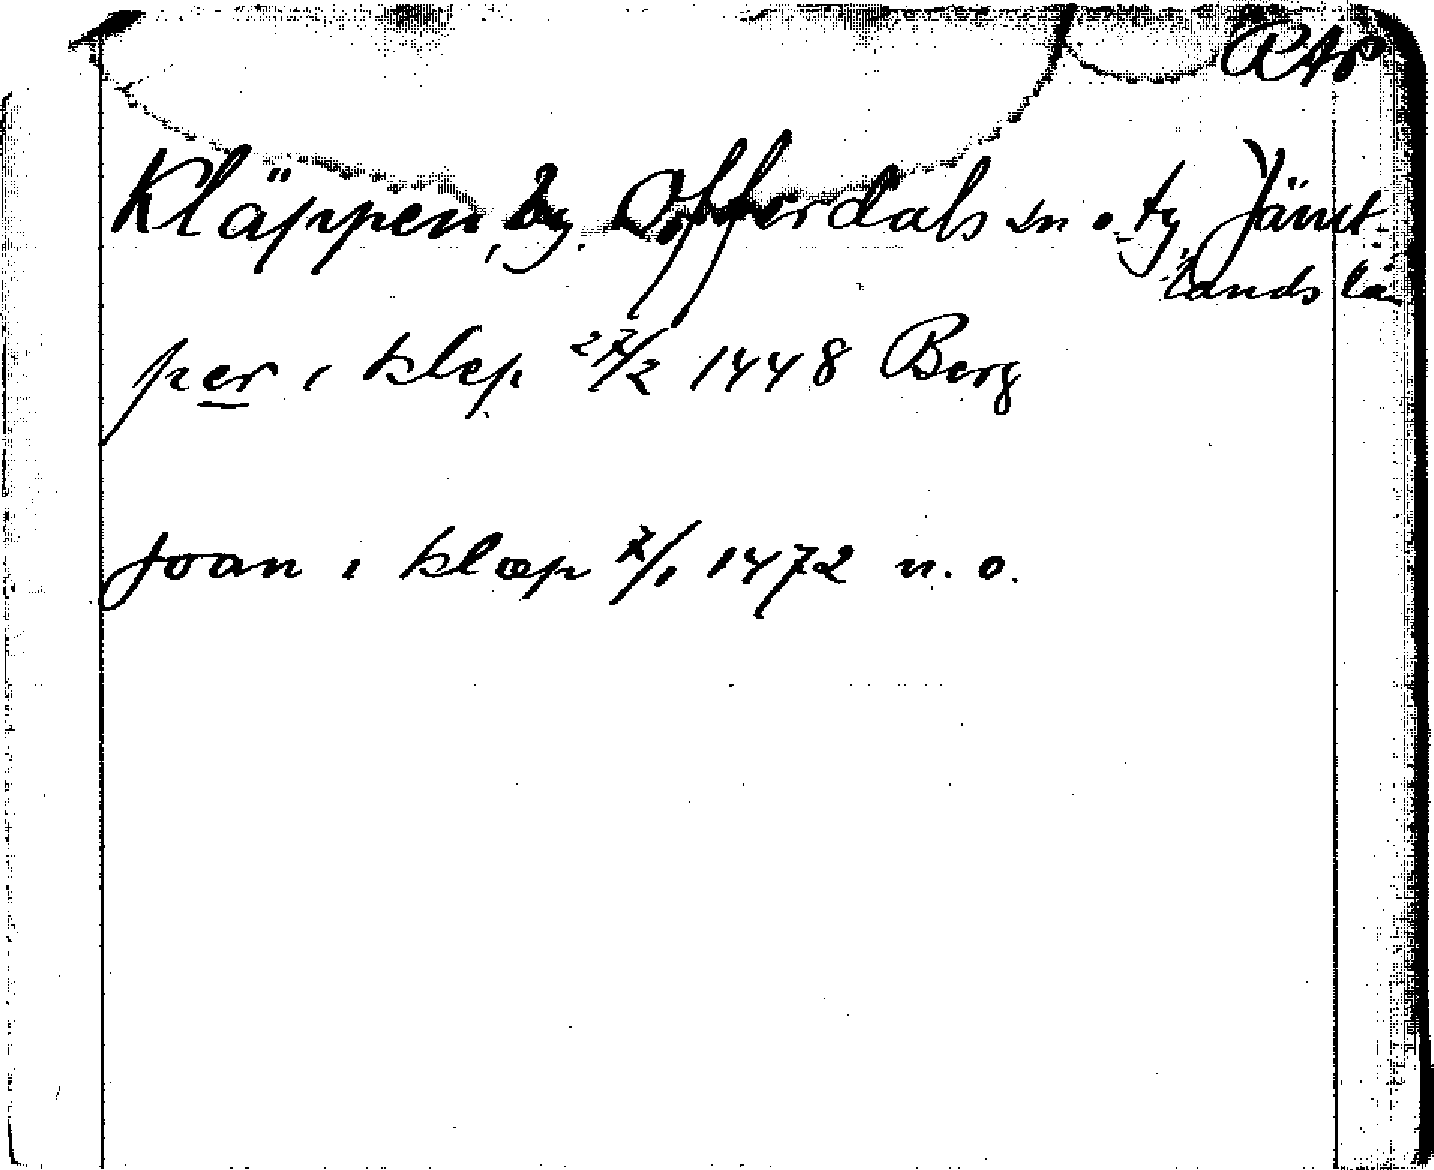 RAp
Kläppen, by. Offerdals sn o. tg, Jämt-
lands län
per i klep 27/2 1448 Berg
Joan i klæp 7/1 1472 n. o.